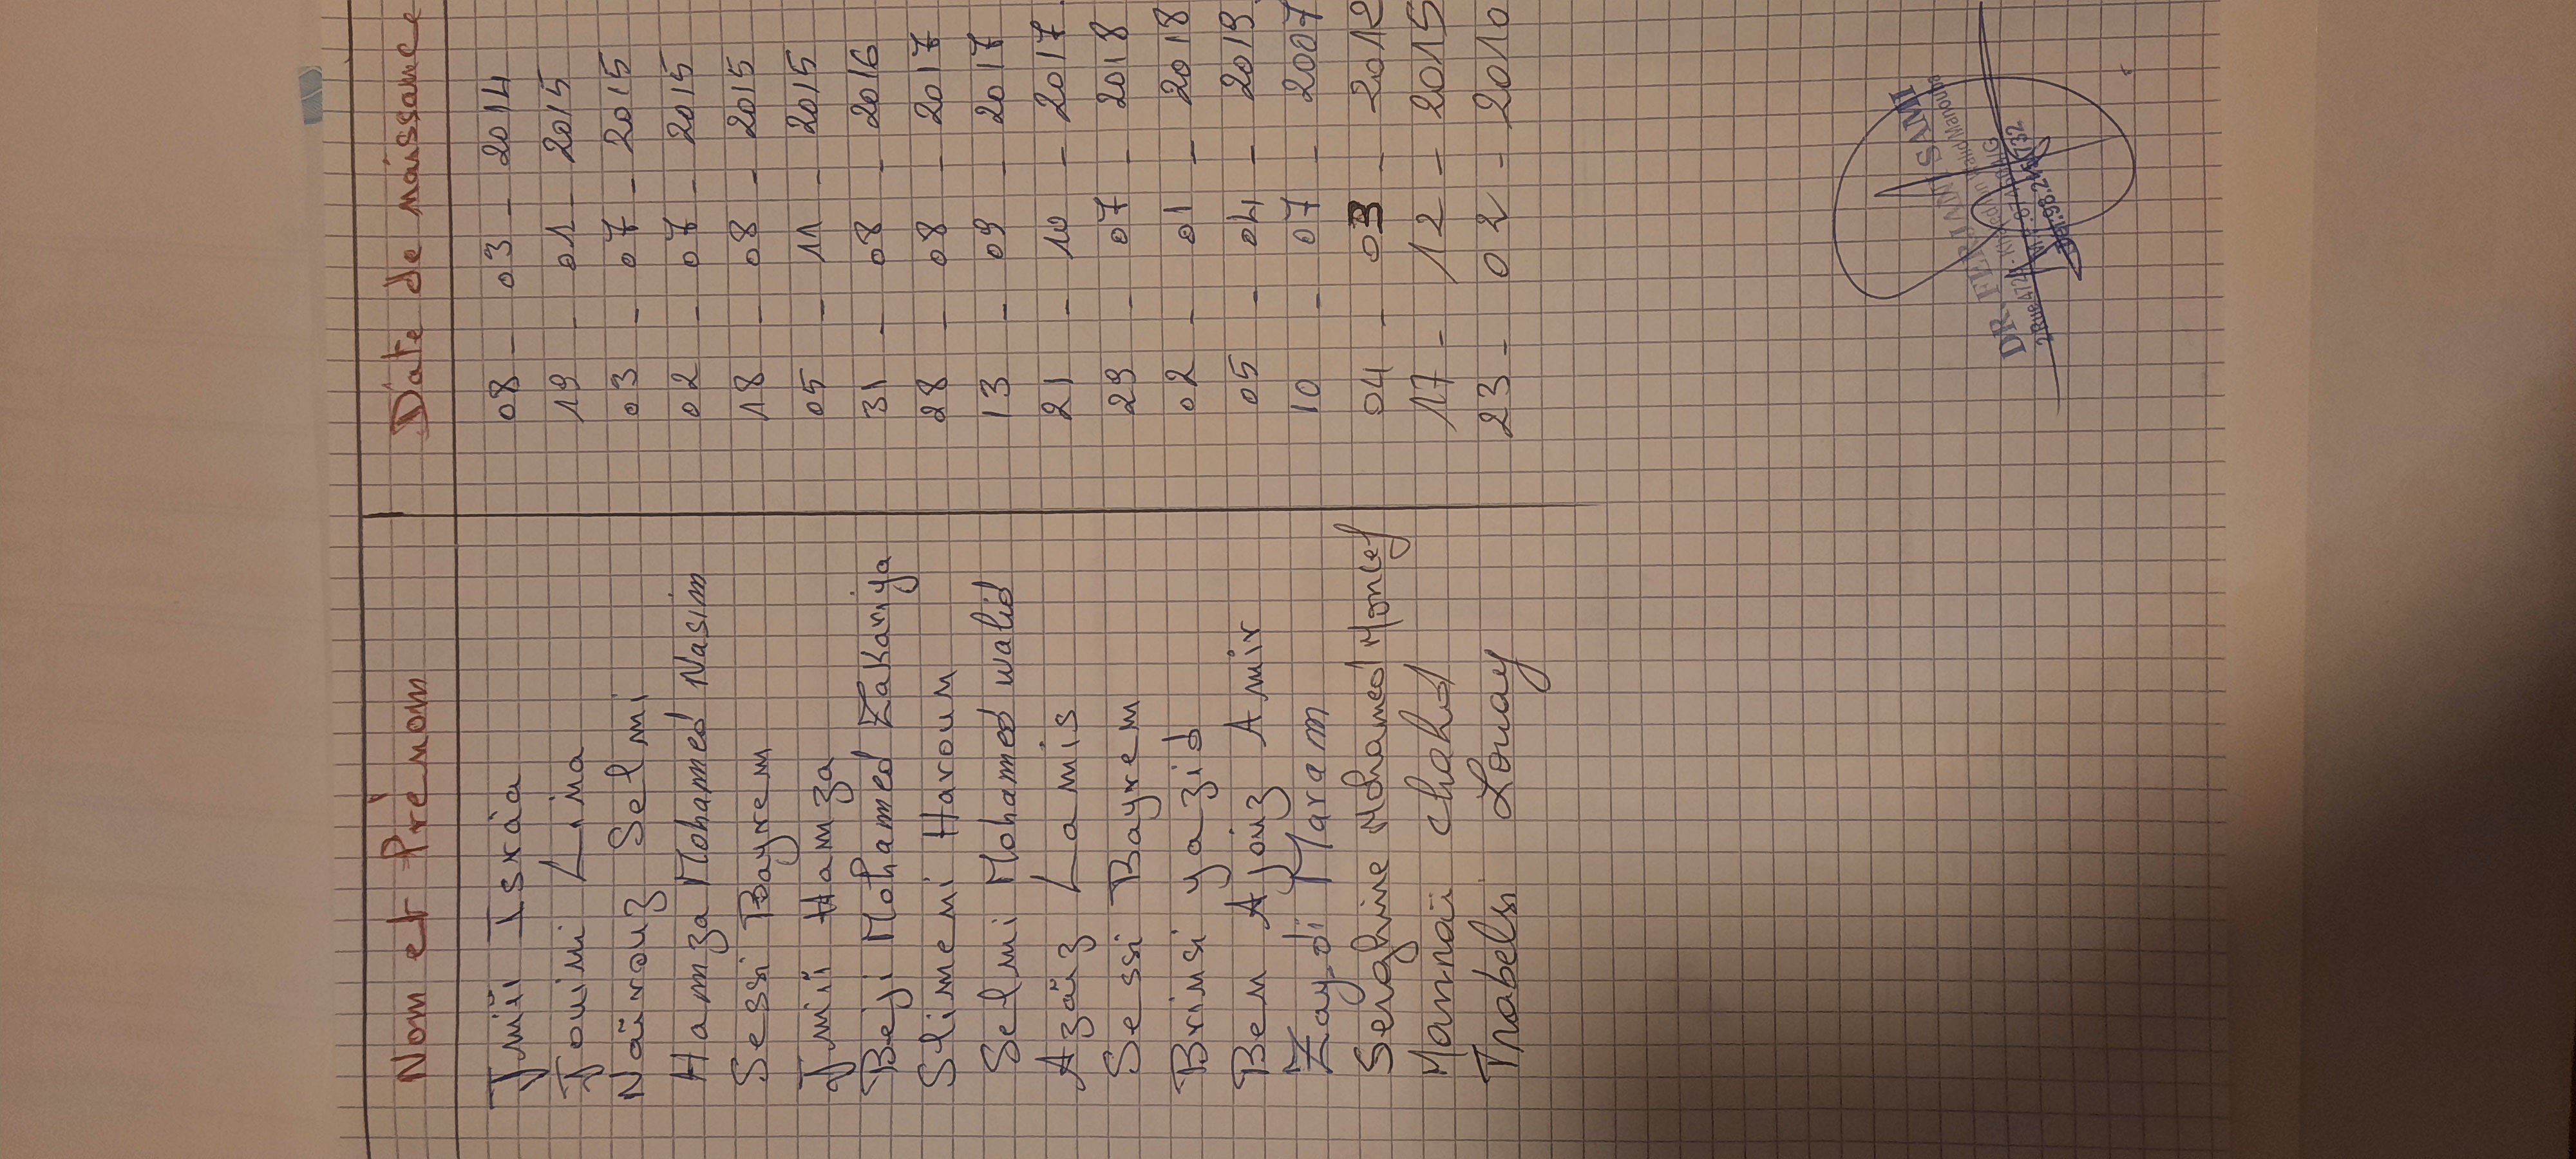 Nom et Prénom Date de naissance
Jmïi Isràa 08 - 03 - 2014
Jouini Lina 19 - 01 - 2015
Naïrouz Selmi 03 - 07 - 2015
Hamza Mohammed Nasim 02 - 07 - 2015
Sessi Bayrem 18 - 08 - 2015
Jmïi Hamza 05 - 11 - 2015
Beji Mohamed Zakariya 31 - 08 - 2016
Slimeni Haroun 28 - 08 - 2017
Selmi Mohamed walid 13 - 09 - 2017
Azaïz Lamis 21 - 10 - 2017
Sessi Bayrem 29 - 07 - 2018
Brinsi yazid 02 - 01 - 2018
Ben Ajouz Amir 05 - 04 - 2019
Zaydi Maram 10 - 07 - 2007
Seraghine Mohamed Moncef 04 - 03 - 2012
Mannaï chahd 17 - 12 - 2015
Trabelsi Louay 23 - 02 - 2010
DR. FERJANI SAMI